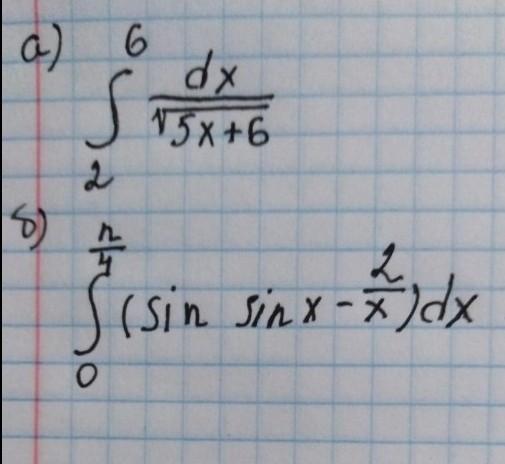 а) ∫₂⁶ dx / √(5x+6)
б) ∫₀^(π/4) (sin sin x - 2/x) dx